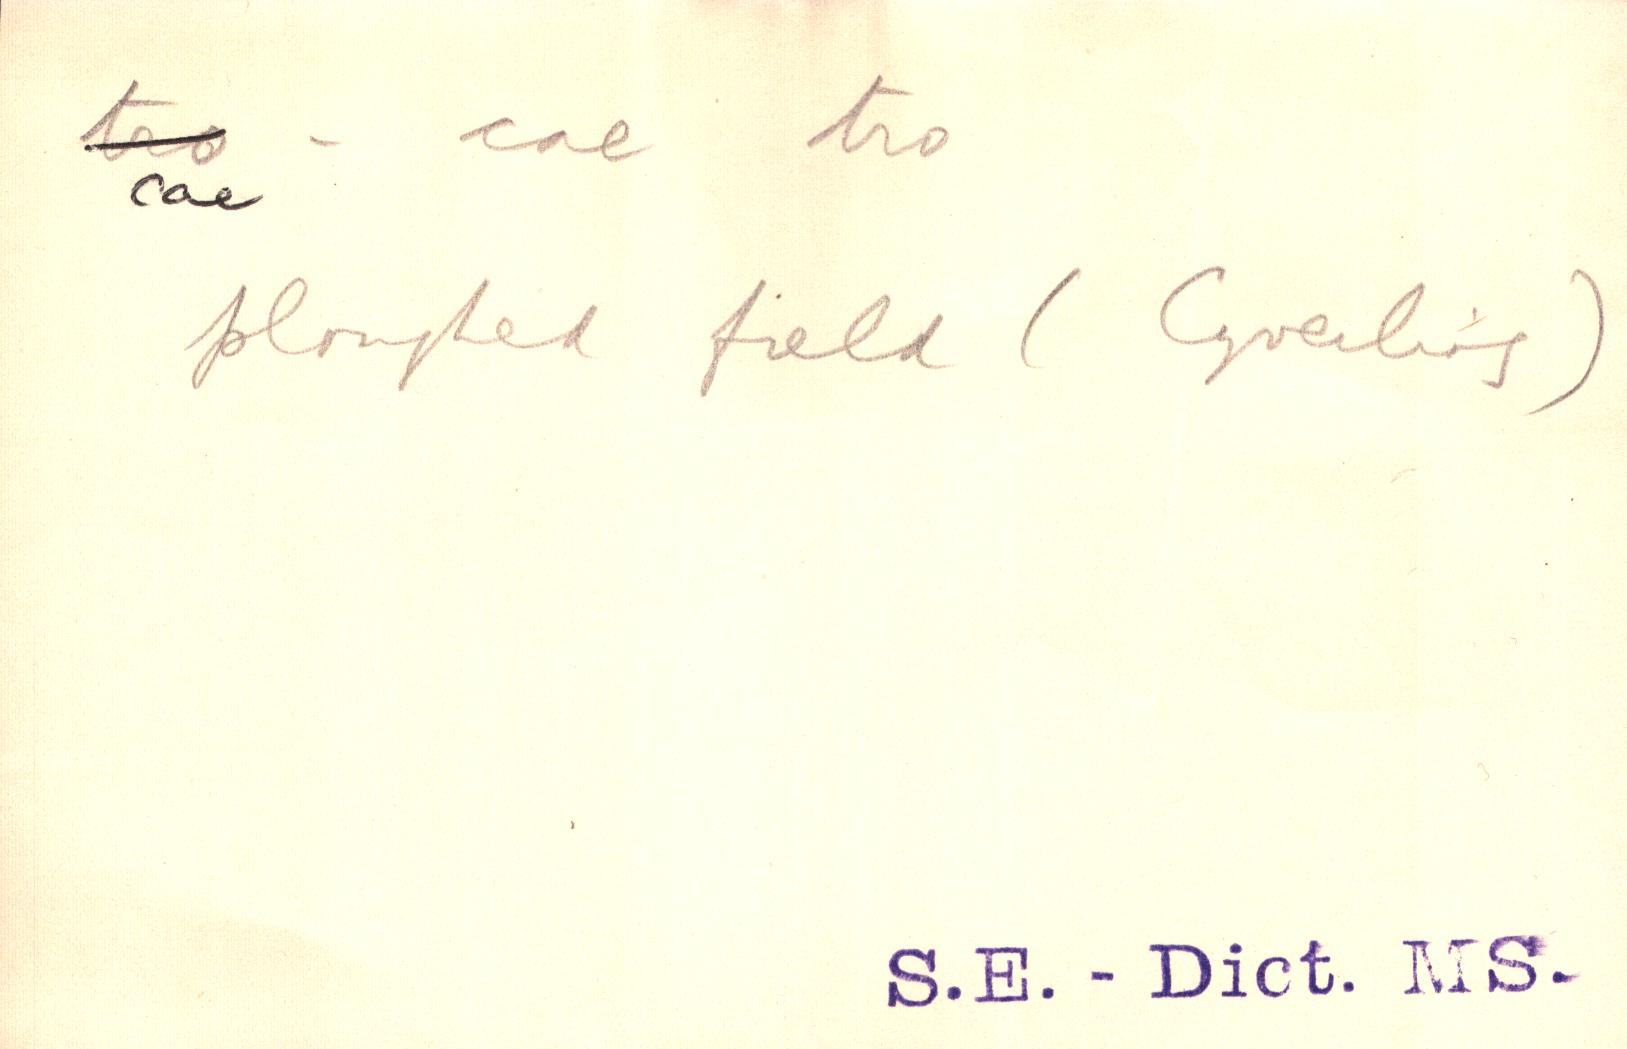 tro - cae tro
cae
ploughed field ( Cyveiliog )
S.E. - Dict. MS.